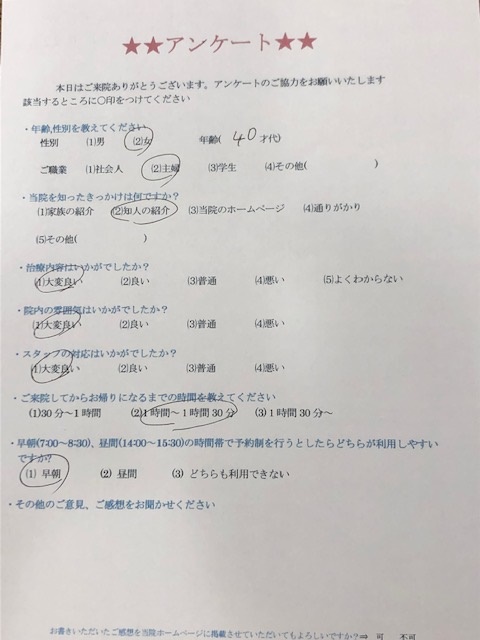 ★★アンケート★★
本日はご来院ありがとうございます。アンケートのご協力をお願いいたします
該当するところに〇印をつけてください
・年齢,性別を教えてください
性別 (1)男 (2)女 年齢( 40 才代)
ご職業 (1)社会人 (2)主婦 (3)学生 (4)その他( )
・当院を知ったきっかけは何ですか？
(1)家族の紹介 (2)知人の紹介 (3)当院のホームページ (4)通りがかり
(5)その他( )
・治療内容はいかがでしたか？
(1)大変良い (2)良い (3)普通 (4)悪い (5)よくわからない
・院内の雰囲気はいかがでしたか？
(1)大変良い (2)良い (3)普通 (4)悪い
・スタッフの対応はいかがでしたか？
(1)大変良い (2)良い (3)普通 (4)悪い
・ご来院してからお帰りになるまでの時間を教えてください
(1)30分～1時間 (2)1時間～1時間30分 (3)1時間30分～
・早朝(7:00～8:30)、昼間(14:00～15:30)の時間帯で予約制を行うとしたらどちらが利用しやすい
ですか？
(1) 早朝 (2) 昼間 (3) どちらも利用できない
・その他のご意見、ご感想をお聞かせください
お書きいただいたご感想を当院ホームページに掲載させていただいてもよろしいですか？⇒ 可 不可